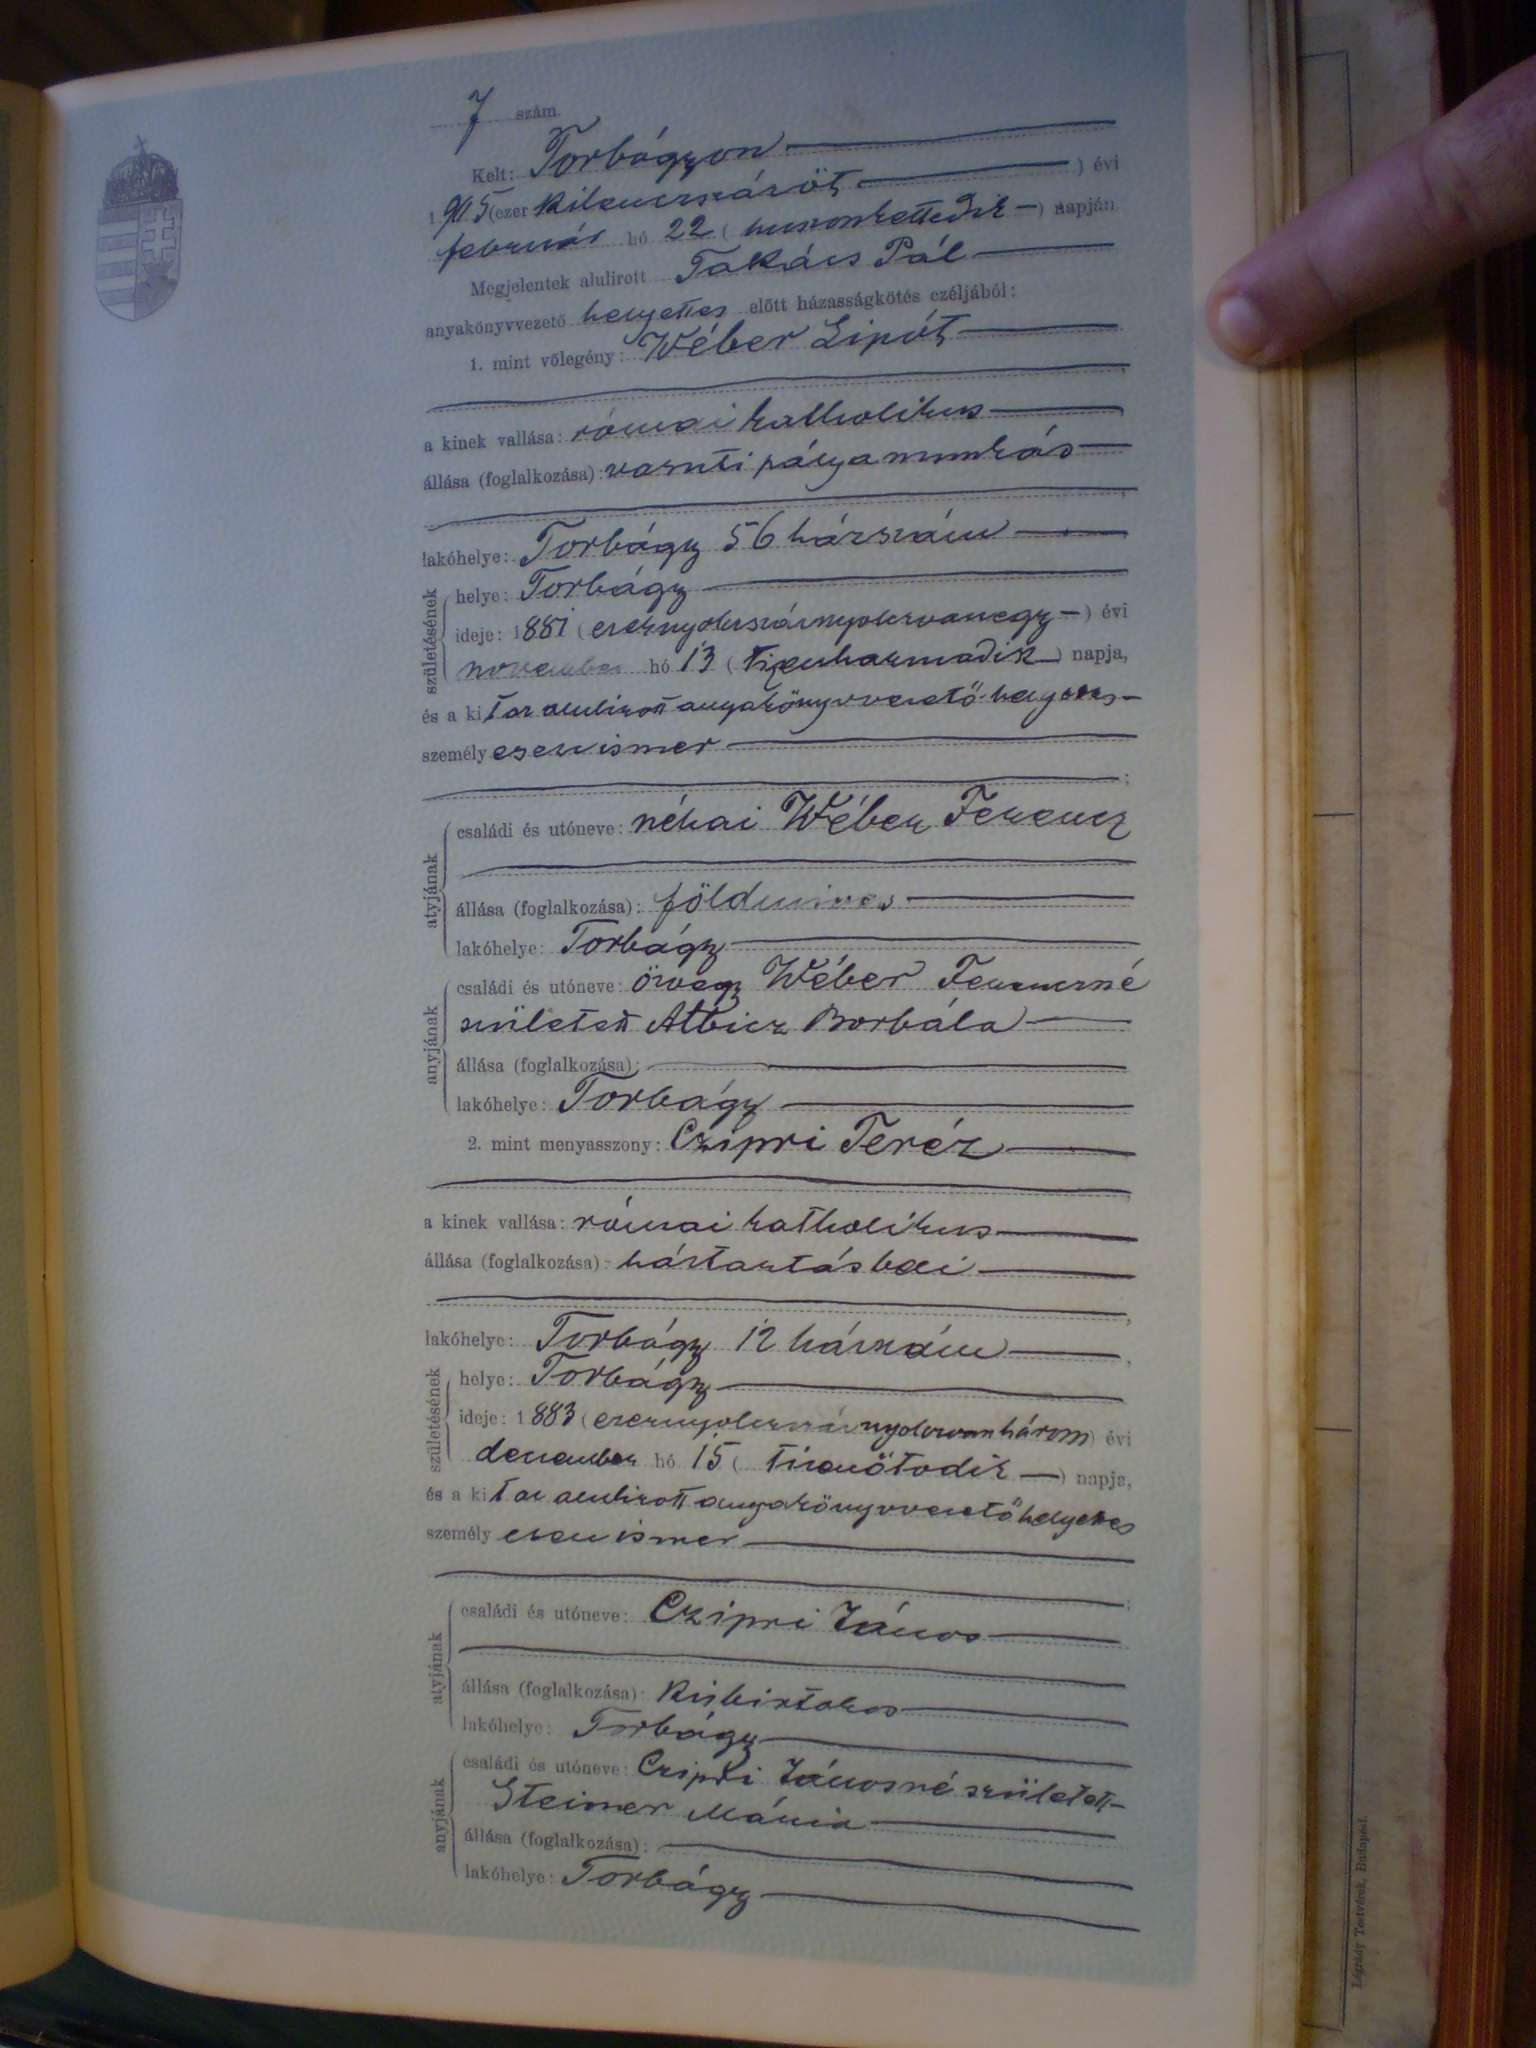 7 szám.
Kelt: Torbágyon
1905 (ezer kilenczszázöt) évi
február hó 22 (huszonkettedik) napján
Megjelentek alulirott Takács Pál
anyakönyvvezető helyettes előtt házasságkötés czéljából:
1. mint vőlegény: Wéber Lipót
a kinek vallása: római katholikus
állása (foglalkozása): vasuti pályamunkás
lakóhelye: Torbágy 56 házszám
születésének
helye: Torbágy
ideje: 1881 (ezernyolczszáznyolczvanegy) évi
november hó 13 (tizenharmadik) napja,
és a kit az alulirott anyakönyvvezető helyettes
személyesen ismer
;
atyjának
családi és utóneve: néhai Wéber Ferencz
állása (foglalkozása): földmives
lakóhelye: Torbágy
anyjának
családi és utóneve: özvegy Wéber Ferenczné
született Albicz Borbála
állása (foglalkozása):
lakóhelye: Torbágy
2. mint menyasszony: Czipri Teréz
a kinek vallása: római katholikus
állása (foglalkozása): háztartásbeli
lakóhelye: Torbágy 12 házszám
születésének
helye: Torbágy
ideje: 1883 (ezernyolczszáznyolczvanhárom) évi
deczember hó 15 (tizenötödik) napja,
és a kit az alulirott anyakönyvvezető helyettes
személyesen ismer
;
atyjának
családi és utóneve: Czipri János
állása (foglalkozása): kisbirtokos
lakóhelye: Torbágy
anyjának
családi és utóneve: Czipri Jánosné született
Steiner Mária
állása (foglalkozása):
lakóhelye: Torbágy
Légrády Testvérek, Budapest.